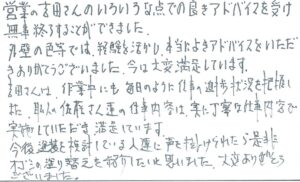 営業の吉田さんのいろいろな点での良きアドバイスを受け
無事終了することができました。
外壁の色等では、経験を活かし、本当によきアドバイスをいただ
きありがとうございました。今は大変満足しています。
吉田さんは、作業中にも毎日のように仕事の進捗状況を把握し
また、職人の佐藤さん達の仕事内容は、実に丁寧な仕事内容で
実施していただき満足しています。
今後塗装を検討している人達に声を掛けられたら是非
オガタの塗り替えを紹介したいと思いました。大変ありがとう
ございました。